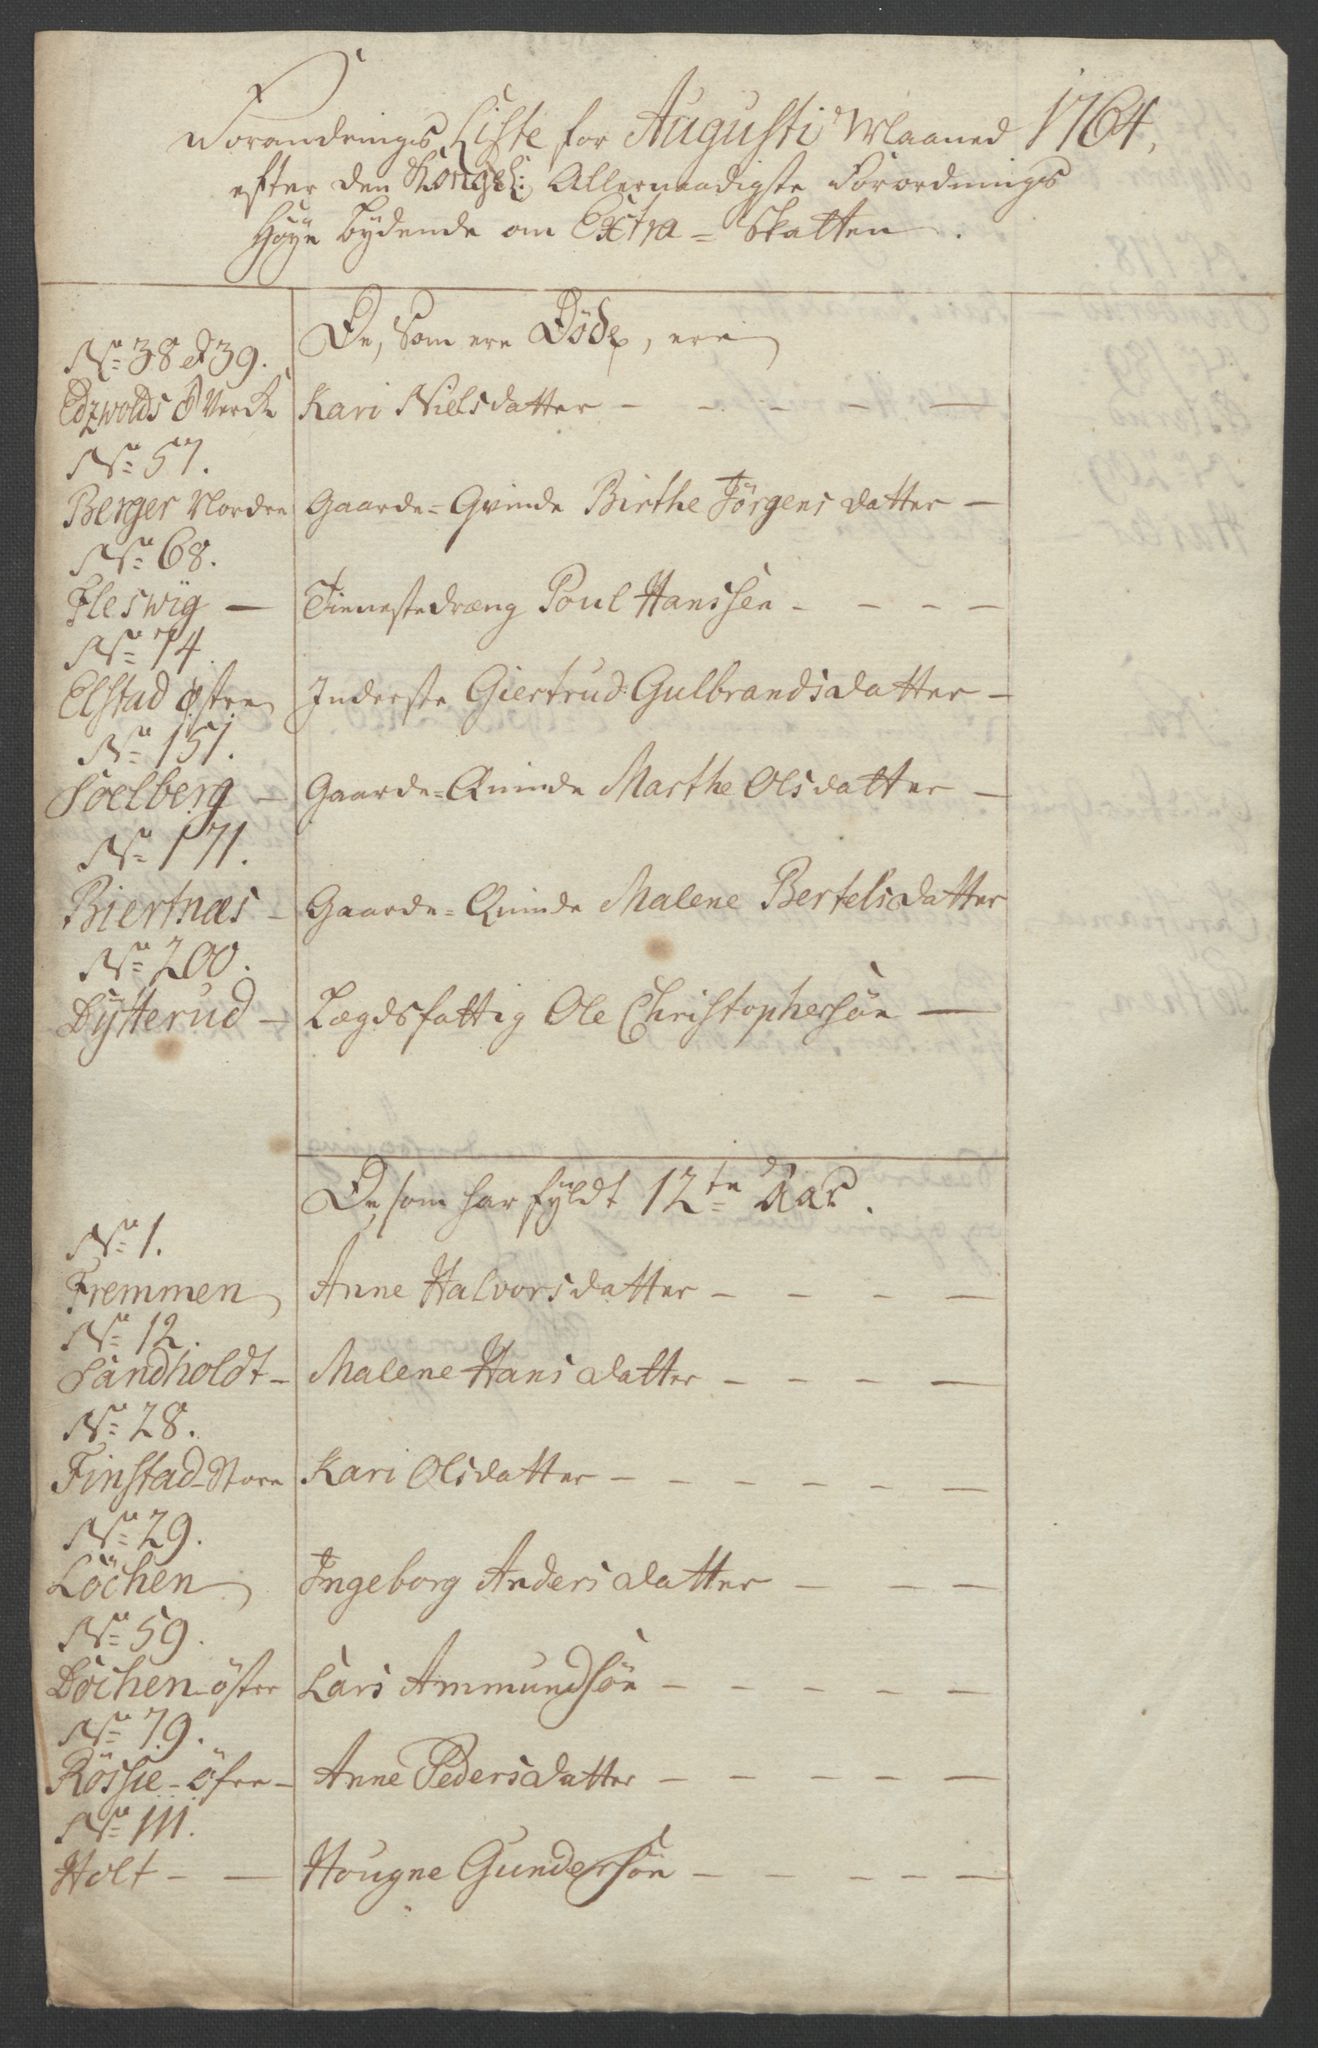 Forandrings Liste for Augusti Maaned 1764,
efter den Kongel: Allernaadigste Forordnings
Høye Lydende om Extra = Skatten.
De, som ere Døde, ere
No 38 & 39.
Edzwolds Værk Kari Nielsdatter – – – – —
No 57.
Berger Nordre Gaarde=Qvinde Birthe Jørgensdatter –
No 68.
Fleswÿg — Tienestedræng Poul Hanssen – – – –
No 74.
Elstad østre Inderste Giertrud Gulbrandsdatter –
No 151.
Soelberg – Gaarde=Quinde Marthe Olsdatter –
No 171.
Biertnæs – Gaarde=Quinde Malene Bertelsdatter
No 200.
Dytterud – Lægdsfattig Ole Christophersøn —
De, som har fyldt 12te Aar.
No 1.
Fremmen Anne Halvorsdatter – – – —
No 12.
Sandholdt – Malene Hansdatter – – – —
No 28.
Finstad-Store Kari Olsdatter – – – – —
No 29.
Löchen Ingeborg Andersdatter – – –
No 59.
Dochen-öster Lars Ammundsøn – – – – —
No 79.
Rössie-öfre – Anne Pedersdatter – – – – —
No 111.
Holt – — Hougne Gundersøn – – – – —